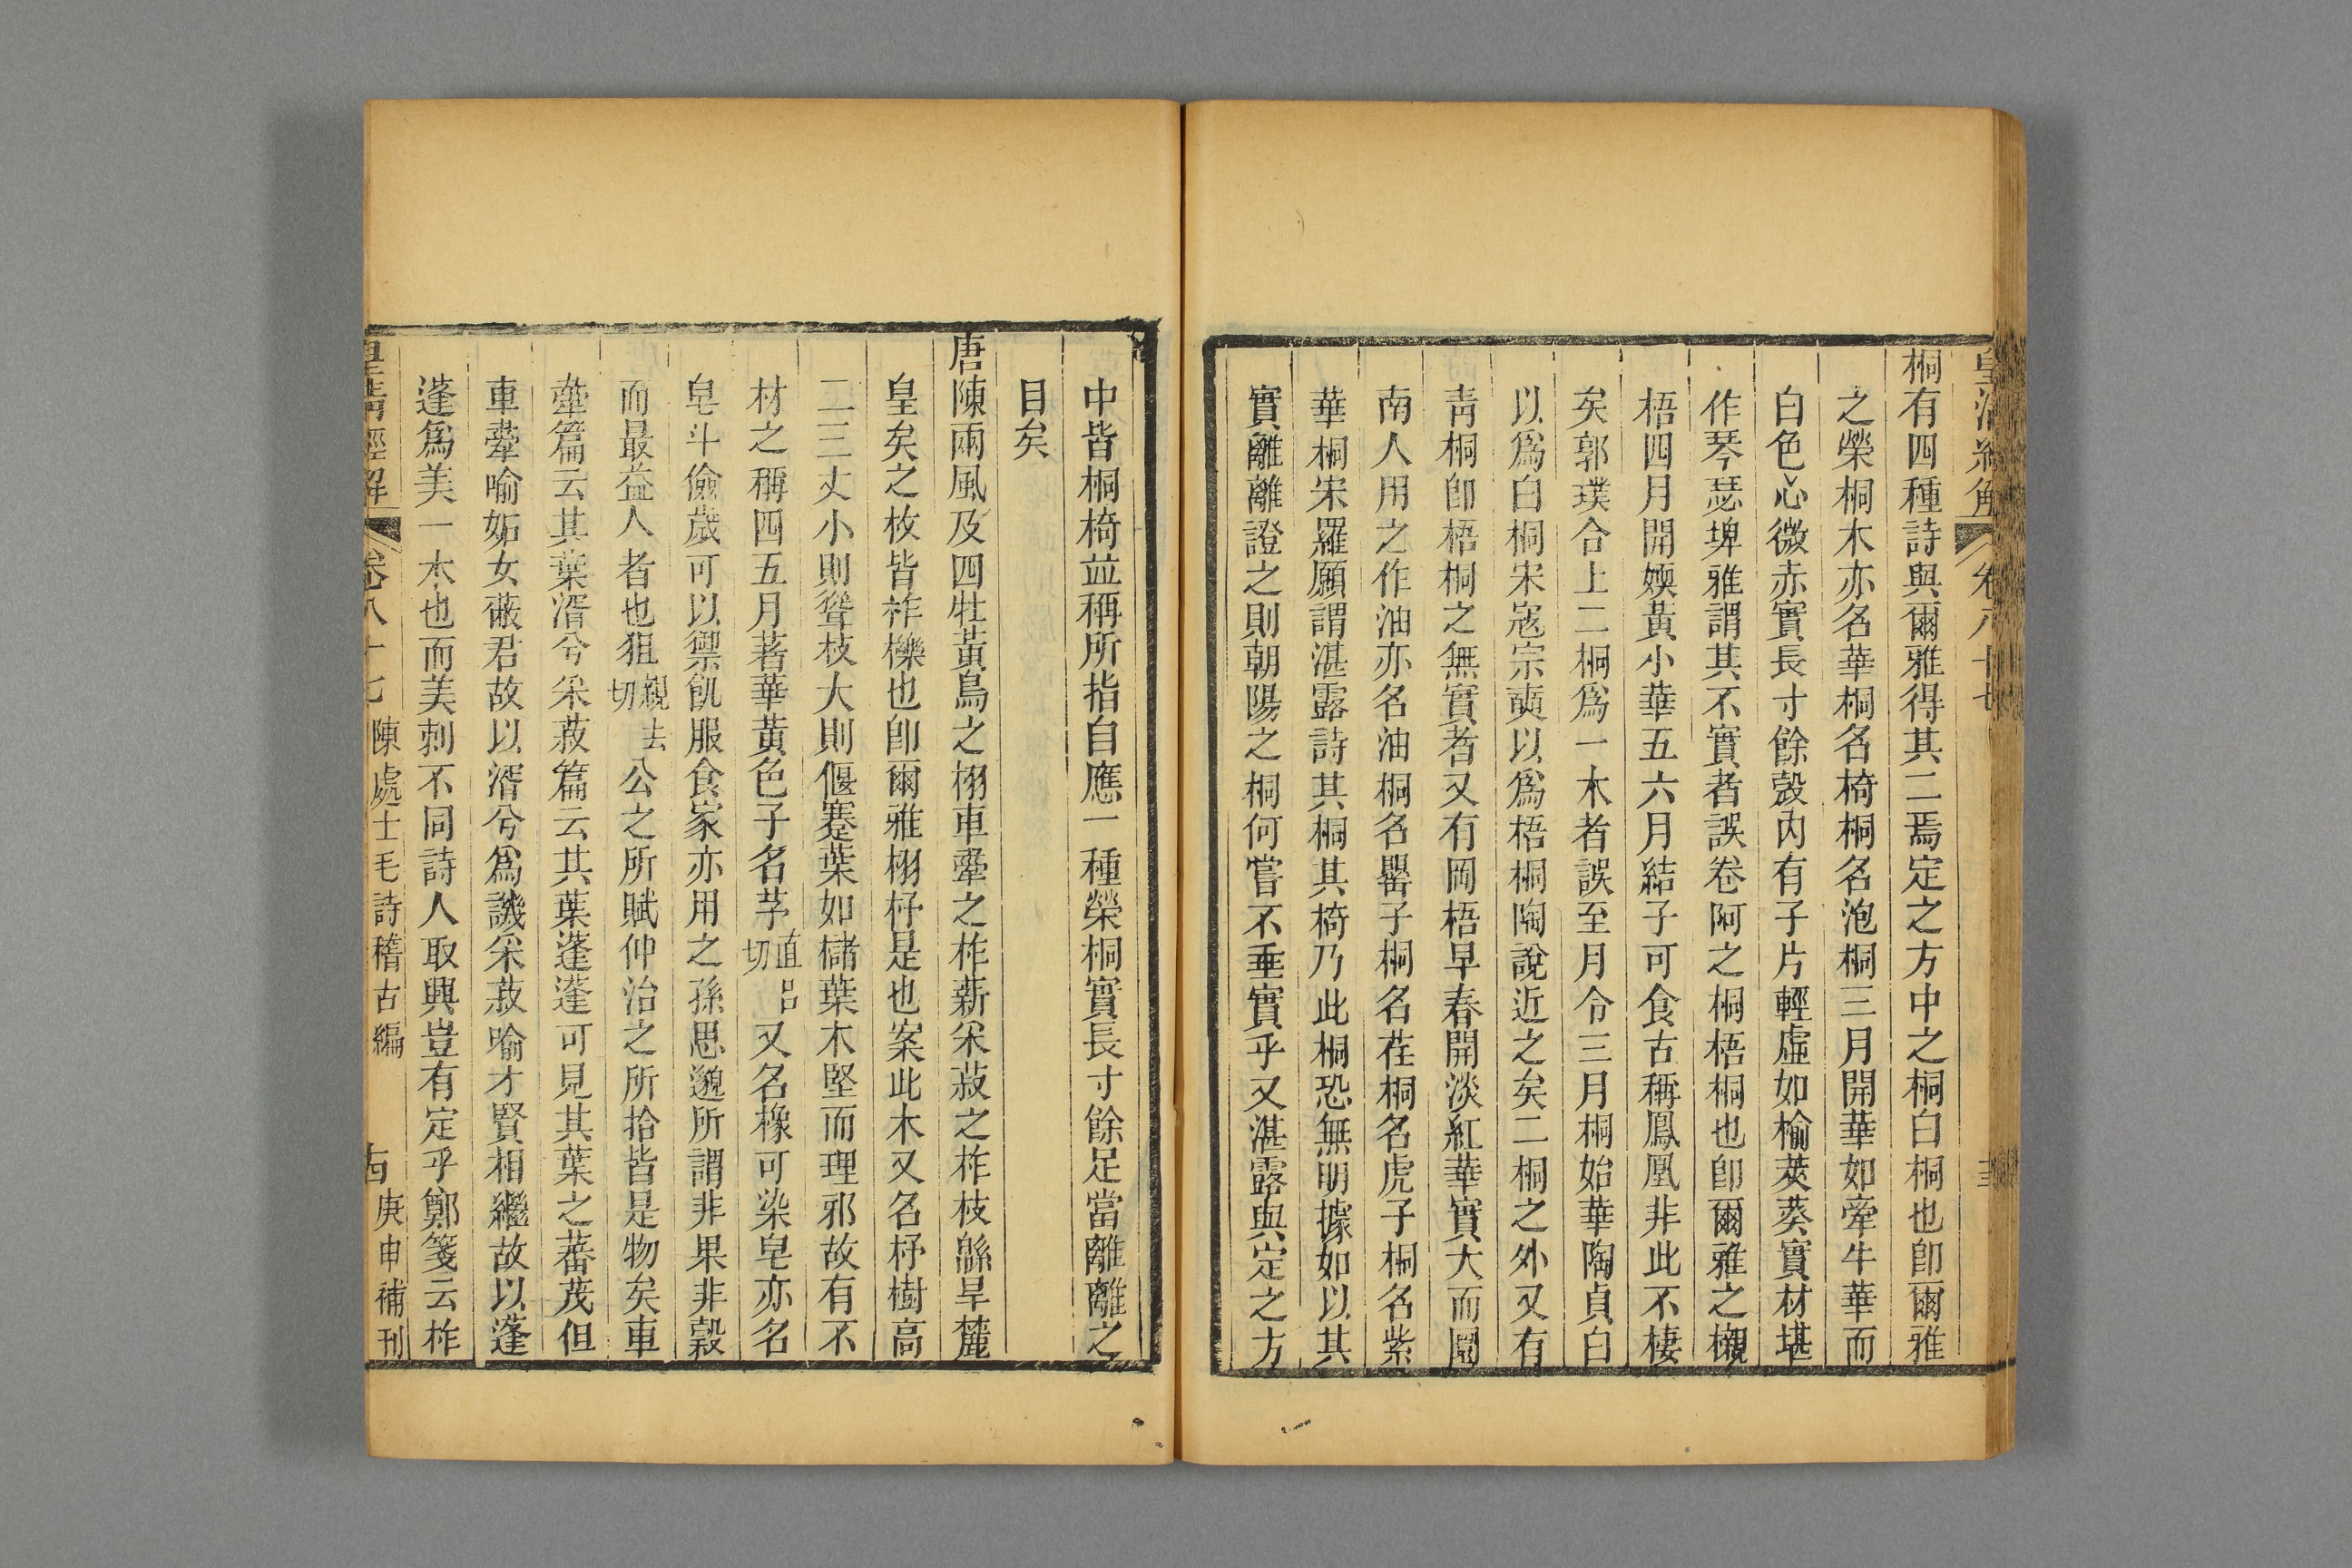 皇清經解 卷八十七
桐有四種詩與爾雅得其二焉定之方中之桐白桐也卽爾雅
之榮桐木亦名華桐名椅桐名泡桐三月開華如牽牛華而
白色心微赤實長寸餘殼內有子片輕虛如楡莢葵實材堪
作琴瑟埤雅謂其不實者誤卷阿之桐梧桐也卽爾雅之櫬
梧四月開嫩黃小華五六月結子可食古稱鳳凰非此不棲
矣郭璞合上二桐爲一木者誤至月令三月桐始華陶貞白
以爲白桐宋寇宗奭以爲梧桐陶說近之矣二桐之外又有
靑桐卽梧桐之無實者又有岡梧早春開淡紅華實大而圓
南人用之作油亦名油桐名罌子桐名荏桐名虎子桐名紫
華桐宋羅願謂湛露詩其桐其椅乃此桐恐無明據如以其
實離離證之則朝陽之桐何嘗不垂實乎又湛露與定之方
中皆桐椅並稱所指自應一種榮桐實長寸餘足當離離之
目矣
唐陳兩風及四牡黃鳥之栩車舝之柞薪采菽之柞枝緜旱麓
皇矣之柞棫皆柞櫟也卽爾雅栩杼是也案此木又名杼樹高
二三丈小則聳枝大則偃蹇葉如櫧葉木堅而理邪故有不
材之稱四五月著華黃色子名芧直呂切又名橡可染皂亦名
皂斗儉歲可以禦飢服食家亦用之孫思邈所謂非果非穀
而最益人者也狙覰去切公之所賦仲治之所拾皆是物矣車
舝篇云其葉湑兮采菽篇云其葉蓬蓬可見其葉之蕃茂但
車舝喻妬女蔽君故以湑兮爲譏采菽喻才賢相繼故以蓬
蓬爲美一木也而美刺不同詩人取興豈有定乎鄭箋云柞
皇淸經解 卷八十七 陳處士毛詩稽古編 古 庚申補刊